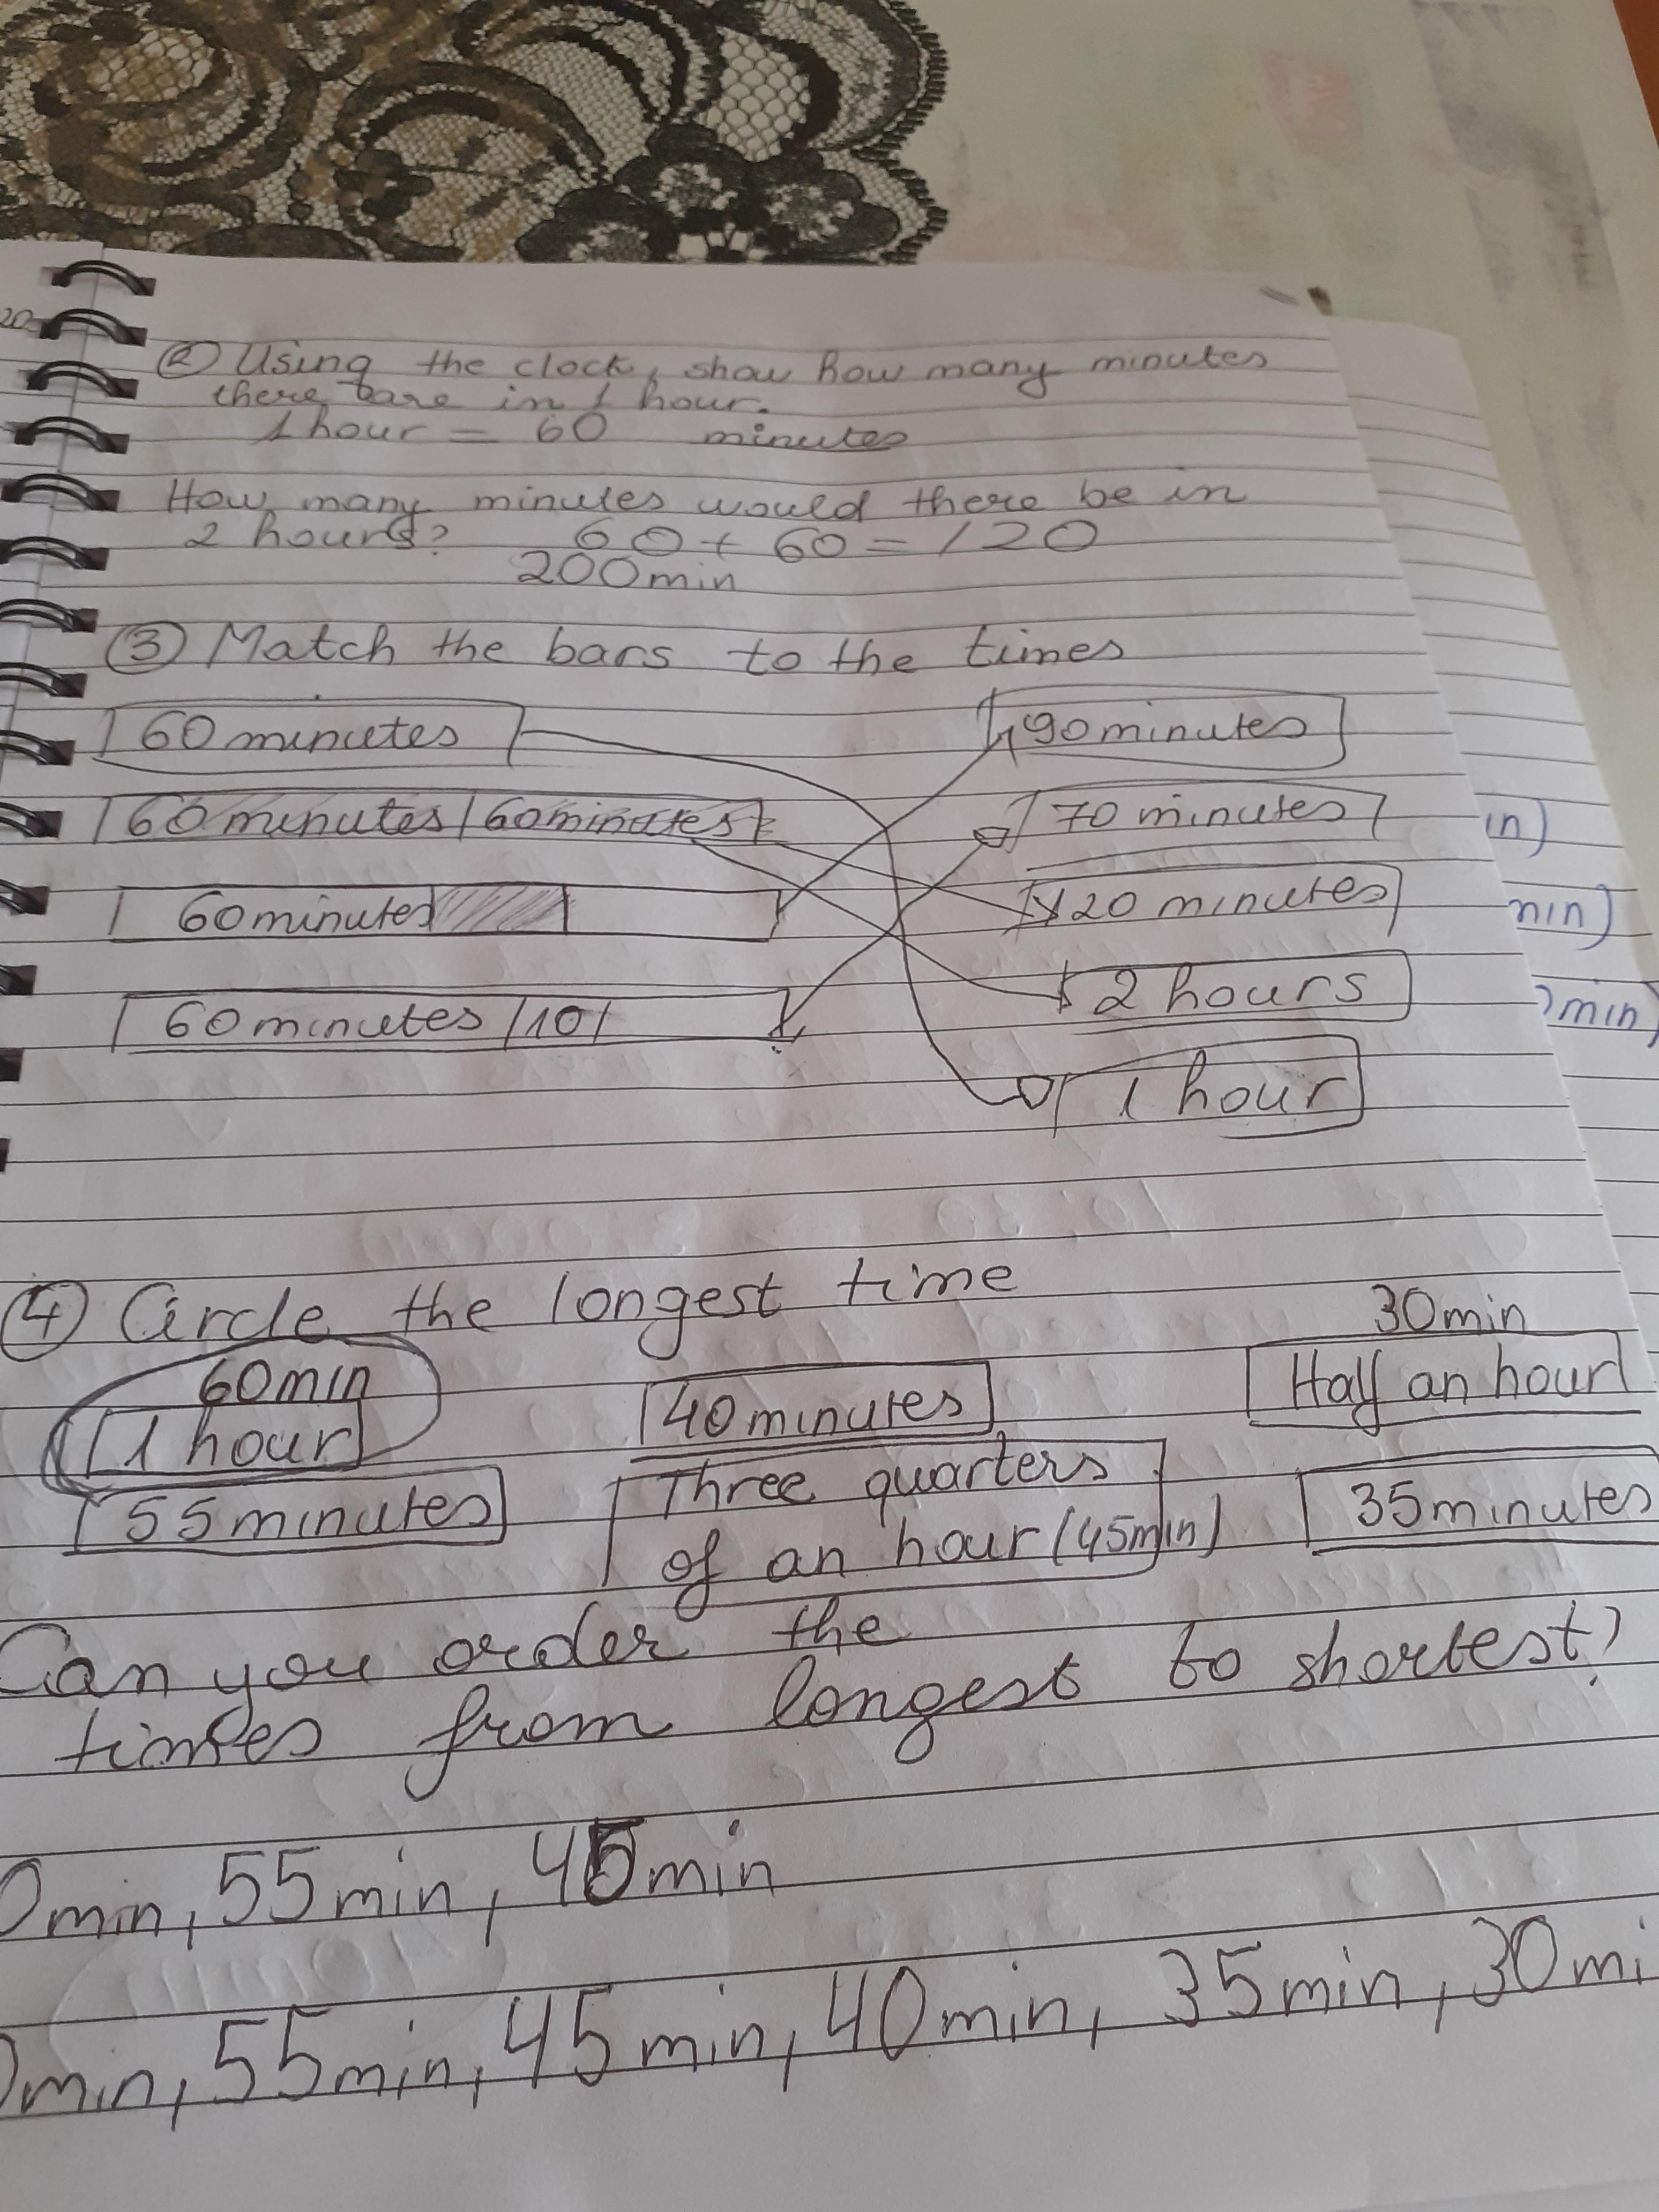 20
② Using the clock, show how many minutes
there are in 1 hour.
1 hour = 60 minutes
How many minutes would there be in
2 hours? 60 + 60 = 120
200min
③ Match the bars to the times
60 minutes
90 minutes
60 minutes 60 minutes
70 minutes
in)
60 minutes
120 minutes
min)
60 minutes 10
2 hours
min)
1 hour
④ Circle the longest time
60min
1 hour
40 minutes
30min
Half an hour
55 minutes
Three quarters
of an hour (45min)
35 minutes
Can you order the
times from longest to shortest?
0min, 55min, 45min
0min, 55min, 45min, 40min, 35min, 30mi